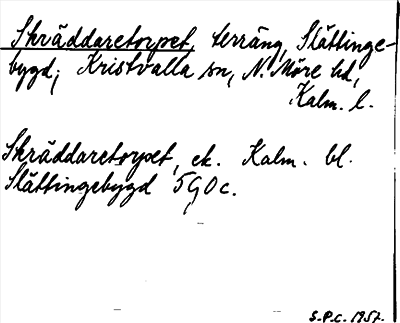 Skräddaretorpet, terräng, Slättinge-
bygd; Kristvalla sn, N. Möre hd,
Kalm. l.
Skräddaretorpet, ek. Kalm. bl.
Slättingebygd 5G0c.
S.P.C. 1957.